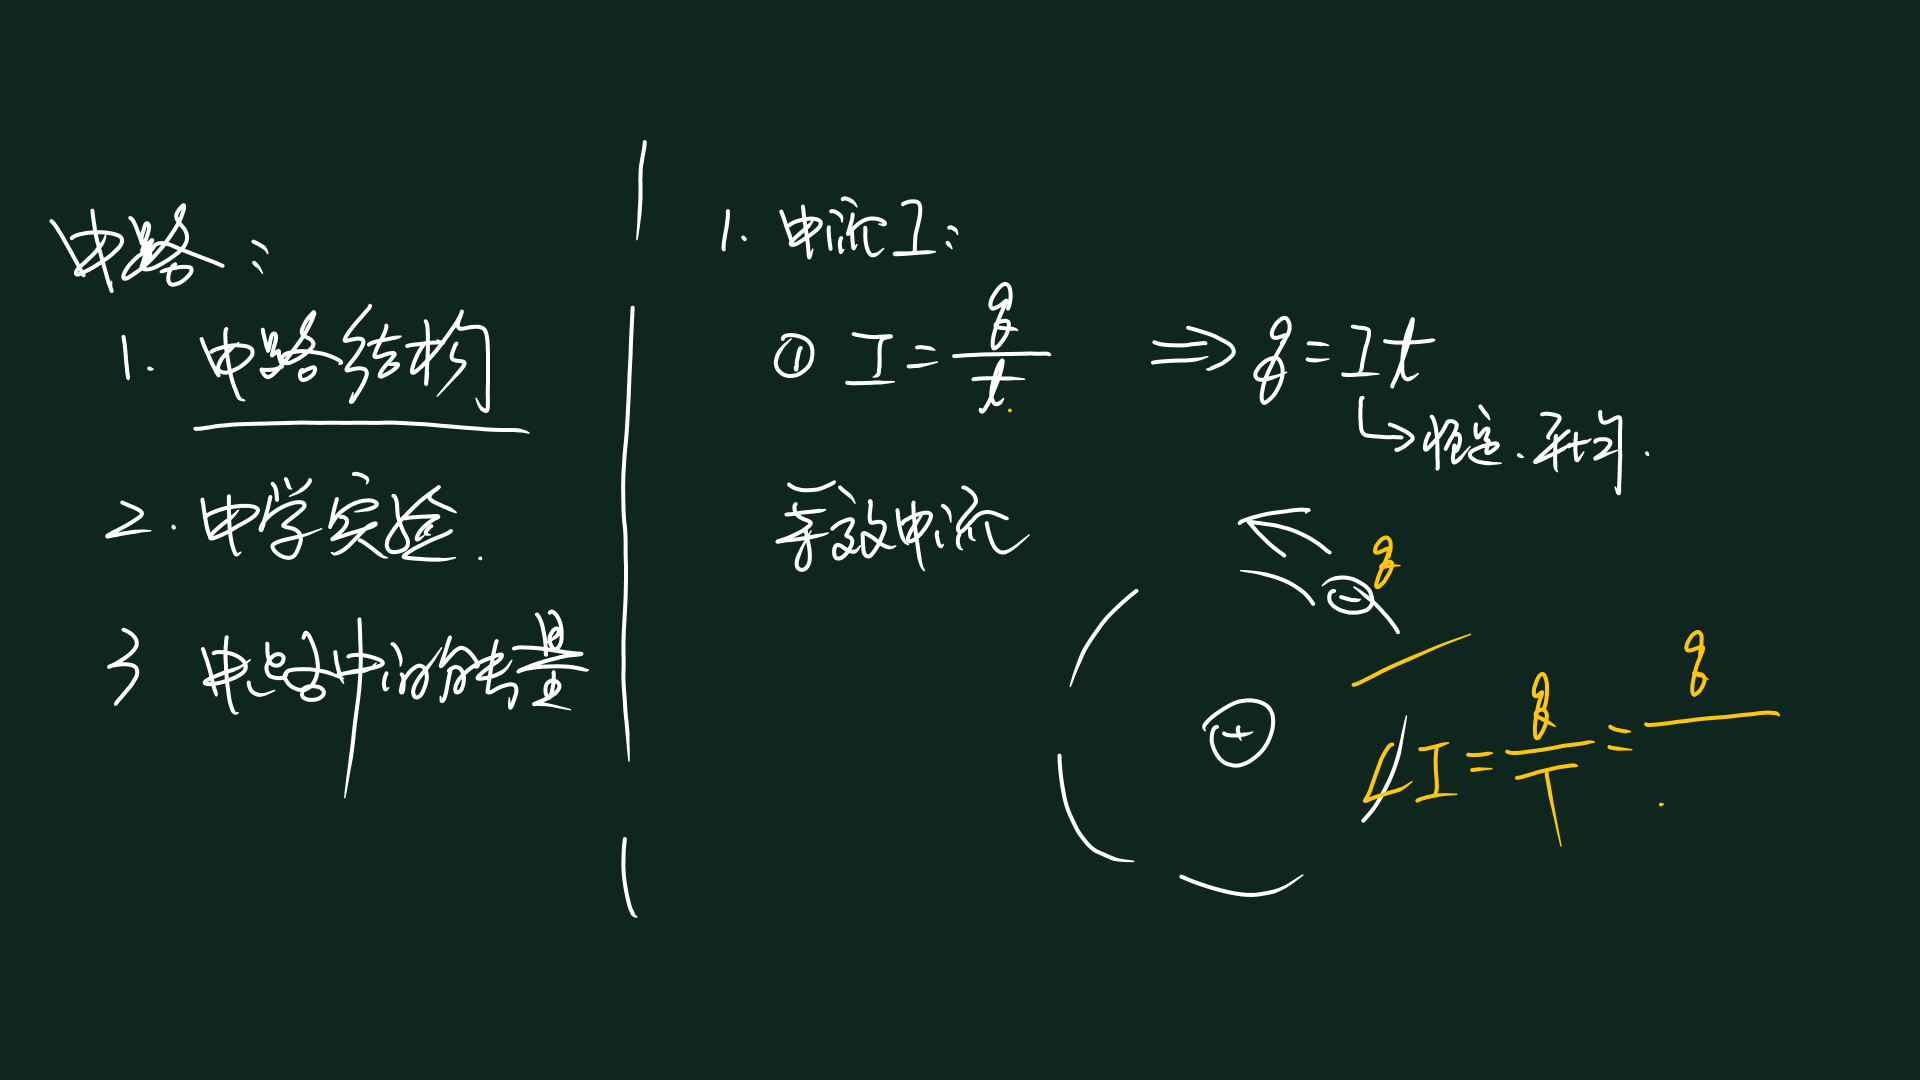 电路：
1. 电路结构
2. 电学实验.
3 电路中的能量
1. 电流I：
① I = q/t ⇒ q = It
↳ 恒定. 平均.
等效电流
q
⊖
⊕
I = q/T = q